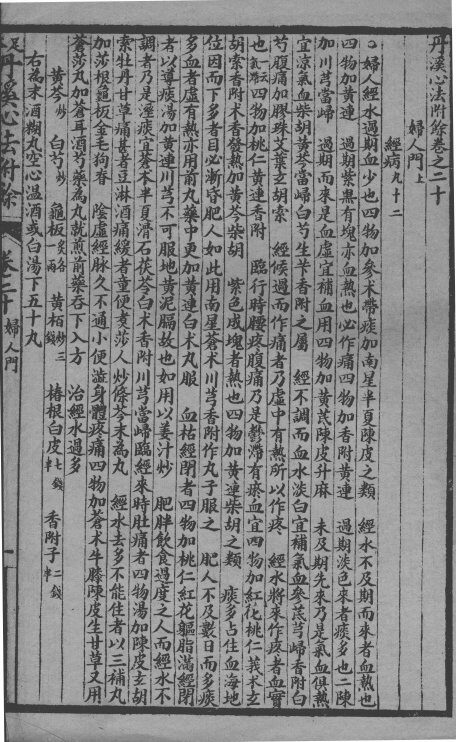 丹溪心法附餘卷之二十
婦人門上
經病九十二
婦人經水過期血少也四物加參朮帶痰加南星半夏陳皮之類　經水不及期而來者血熱也
四物加黃連　過期紫黑有塊亦血熱也必作痛四物加香附黃連　過期淡色來者痰多也二陳
加川芎當歸　過期而來乃是血虛宜補血用四物加黃芪陳皮升麻　未及期先來乃是氣血俱熱
宜涼氣血柴胡黃芩當歸白芍生苄香附之屬　經不調而血水淡白宜補氣血參芪芎歸香附白
芍腹痛加膠珠艾葉玄胡索　經候過而作痛者乃虛中有熱所以作疼　經水將來作疼者血實
也一云氣滯四物加桃仁黃連香附　臨行時腰疼腹痛乃是鬱滯有瘀血宜四物加紅花桃仁莪朮玄
胡索香附木香發熱加黃芩柴胡　紫色成塊者熱也四物加黃連柴胡之類　痰多占住血海地
位因而下多者目必漸昏肥人如此用南星蒼朮川芎香附作丸子服之　肥人不及數日而多痰
多血者虛有熱亦用前丸藥中更加黃連白朮丸服　血枯經閉者四物加桃仁紅花軀脂滿經閉
者以導痰湯加黃連川芎不可服地黃泥膈故也如用以姜汁炒　肥胖飲食過度之人而經水不
調者乃是溼痰宜蒼朮半夏滑石茯苓白朮香附川芎當歸臨經來時肚痛者四物湯加陳皮玄胡
索牡丹甘草痛甚者豆淋酒痛緩者童便煑莎入炒條芩末為丸　經水去多不能住者以三補丸
加莎根龜板金毛狗脊　陰虛經脉久不通小便澁身體疼痛四物加蒼朮牛膝陳皮生甘草又用
蒼莎丸加蒼耳酒芍藥為丸就煎前藥吞下入方　治經水過多
黃芩炒　白芍炒　龜板炙各一兩　黃栢炒三錢　椿根白皮七錢半　香附子二錢半
右為末酒糊丸空心溫酒或白湯下五十丸
丹溪心法附餘　卷二十　婦人門　一